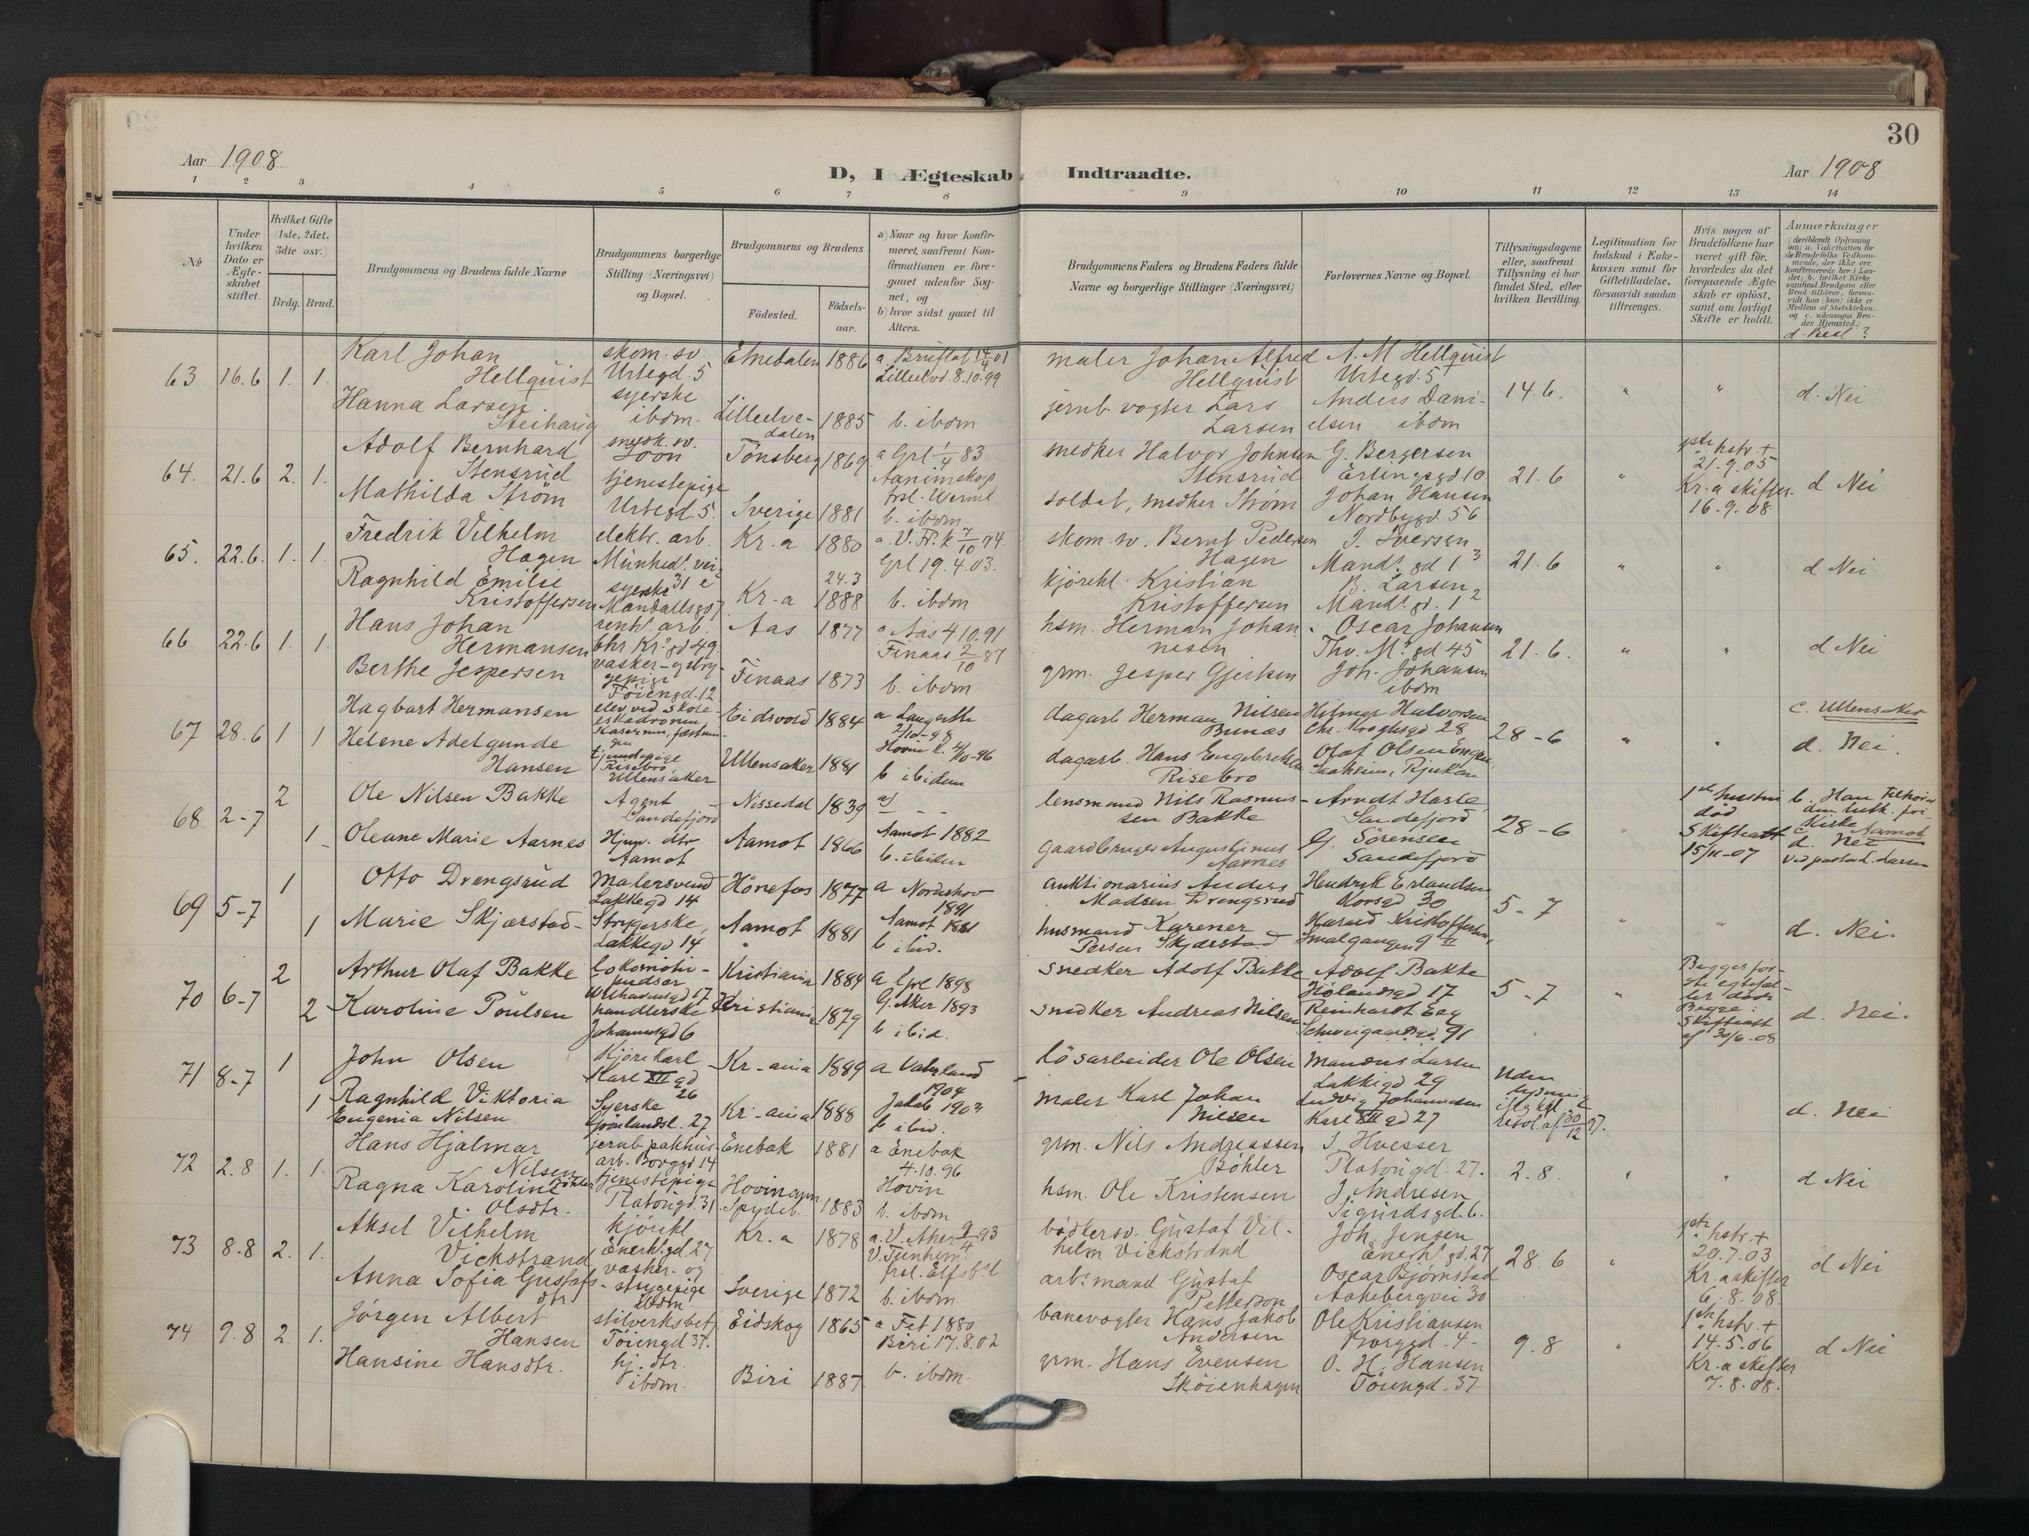 30
Aar 1908
D, I Ægteskab Indtraadte.
Aar 1908
1 2 3 4 5 6 7 8 9 10 11 12 13 14
№
Under hvilken Dato er Ægteskabet stiftet.
Hvilket Gifte (1ste, 2det, 3die osv.)
Brdg. Brud.
Brudgommens og Brudens fulde Navne
Brudgommens borgerlige Stilling (Næringsvei) og Bopæl.
Brudgommens og Brudens
Födested.
Födselsaar.
a) Naar og hvor konfirmeret, saafremt Konfirmationen er foregaaet udenfor Sognet, og
b) hvor sidst gaaet til Alters.
Brudgommens Faders og Brudens Faders fulde Navne og borgerlige Stillinger (Næringsvei)
Forlovernes Navne og Bopæl.
Tillysningsdagene eller, saafremt Tillysning ei har fundet Sted, efter hvilken Bevilling.
Legitimation for Indskud i Enkekassen samt for Giftetilladelse, forsaavidt saadan tiltrænges.
Hvis nogen af Brudefolkene har været gift før, hvorledes da det foregaaende Ægteskab er opløst, samt om lovligt Skifte er holdt.
Anmærkninger
d. Besl?
63 16.6 1. 1.
Karl Johan Hellquist
skom. sv. Urtegd. 5
Etnedalen 1886
a. Bruflat 14/4 01
Lilleelvd 8.10.99
maler Johan Alfred Hellquist
A. M Hellquist
Urtegd. 5
14.6. " " d. Nei
Hanna Larsen Steihaug
syerske ibdm.
Lilleelvedalen 1885
b. ibdm
jernb vogter Lars Larsen
Anders Danielsen ibdm
64. 21.6 2. 1.
Adolf Bernhard Stensrud
snedk. sv. Soon
Tønsberg 1869
a Grl 1/4 83
snedker Halvor Johnsen Stensrud
G. Bergersen
Erlingsgd. 10
21.6 "
1ste hstr +
21.9.05
Kr.a skifter.
16.9.08
d Nei
Mathilda Strøm
tjenestepige
Urtegd. 5.
Sverige 1881
b. ibdm.
soldat, Strøm
Johan Hansen
Nordbygd 56
65. 22.6. 1. 1.
Fredrik Vilhelm Hagen
elektr. arb.
Munked. vei 31 e
Kr.a 1880
a. V. Fr. k 7/10 94.
Grl 19.4.03.
skom. sv. Bernt Pedersen Hagen
J. Iversen
Mand. gd 13
21.6 " " d Nei
Ragnhild Emilie Kristoffersen
syerske
Mandallsg 5
Kr.a 24.3 1888
b. ibdm
kjørekl. Kristian Kristoffersen
B. Larsen
Mand. gd. 12
66 22.6 1. 1
Hans Johan Hermansen
renh. arb.
Chr Kr. gd 49.
Aas 1877
a Aas 4 10.91
Finaas 2/10 87
hsm. Herman Johannesen
Oscar Johansen
Thv. M. gd 45
21.6. " " d Nei
Berthe Jespersen
Tøiengd. 12
Finaas 1873
b. ibdm
grm. Jesper Gjertsen
Joh. Johansen
ibdm
67 28.6 1 1
Hagbart Hermansen
elev ved skoleeskadronen
Eidsvold 1884
a Langseth
2/10-98
dagarb Herman Nilsen Bunæs
Hilmar Halvorsen
Chr. Kroghsgd 28
28-6 " "
c. Ullensaker
d. Nei.
Helene Adelgunde Hansen
tjenestepige
Risebro
Ullensaker
Ullensaker 1881
Hovin k. 4/10-96
b ibidem
dagarb. Hans Engebretsen Risebro
Olaf Olsen
Saaheim, Rjukan
68 2-7 2 1
Ole Nilsen Bakke
Agent
Sandefjord
Nissedal 1839
a) - -
lensmand Nils Rasmussen Bakke
Arndt Harle
Sandefjord
28-6
1ste hustru død
Skifteatt
15/11-07
b. Han
c. Aamot
d. Nei
Ved pastor Larsen
Oleane Marie Aarnes
Hjem. dtr
Aamot
Aamot 1866
Aamot 1882
b. ibidem
gaardbruger Augustinus Aarnes
G. Sørensen
Sandefjord
69 5-7 1 1
Otto Drengsrud
Malersvend
Lakkegd 14
Hønefos 1877
a Norderhov 1891
auktionarius Anders Madsen Drengsrud
Hendrik Erlandsen
Korsgd 30
5-7 " " d. Nei.
Marie Skjærstad
Strygerske,
Lakkegd 14
Aamot 1881
Aamot
b ibid.
husmand Karener Persen Skjærstad
Harald Kristoffersen
Smalgangen 9 II
70 6-7 2 2
Arthur Olaf Bakke
Lokomotivpudser
Kristiania 1884
a Grl 1898
snedker Adolf Bakke
Adolf Bakke
Hølandsgd 17
5-7 "
d. Nei.
Karoline Poulsen
handlerske
Johannesgd 6
Kristiania 1879
G. Aker 1893
b ibid.
snedker Andreas Nilsen
Reinhardt Eeg
Schweigaardsgd 91
Skifteatt
af 30/6-08
71 8-7 1 1
John Olsen
Kjørekarl
Karl XII gd 26
Kr-ania 1889
a Vaterland 1904
løsarbeider Ole Olsen
Mandus Larsen
Lakkegd 29
Uden lysning
d. Nei
Ragnhild Viktoria Eugenia Nilsen
Syerske
Grønlandsl. 27
Kr-ania 1888
Jakob 1903
b ibid.
maler Karl Johan Nilsen
Ludvig Johannesen
Karl XII gd 27
72 2.8 1. 1.
Hans Hjalmar Nilsen Böhler
jernb. pakhusarb. Borggd 14
Enebak 1881
a Enebak
4.10.96
grm. Nils Andreassen Böhler
J. Huesser
Platousgd. 27.
2.8. " " d Nei
Ragna Karoline Olsdtr.
tjenestepige
Platousgd. 31.
Hovin Spydeb. 1883
Hovin
b. ibdm
hsm. Ole Kristensen
J. Andresen
Sigurdsgd. 6.
73 8.8 2. 1.
Aksel Vilhelm Vickstrand
kjørekl
Enerh. gd. 27.
Kr.a 1878
a. V. Aker 9/4 93
bødkersv. Gustaf Vilhelm Vickstrand
Joh. Jensen
Enerh. gd. 27
28.6 "
1ste hstr. +
20.7.03
Kr.a skifter
6.8.08.
d Nei
Anna Sofia Gustafsdtr
vasker- og strygepige
ibdm.
Sverige 1872
b. ibdm
arb.mand Gustaf Petterson
Oscar Bjørnstad
Aakebergvei 30
74 9.8 2. 1.
Jørgen Albert Hansen
stilverksbetj.
Tøiengd. 37.
Eidskog 1865
a Fet 1880
Biri 17.8.02
banevogter Hans Jakob Andersen
Ole Kristiansen
Borggd. 4-
9.8 "
1ste hstr. +
14.5.06
Kr. a skifter
7.8.08.
d Nei
Hansine Hansdtr.
hj. dtr.
ibdm.
Biri 1887.
b. ibdm.
grm. Hans Evensen Skøienhagen
O. H. Hansen
Tøiengd. 37-